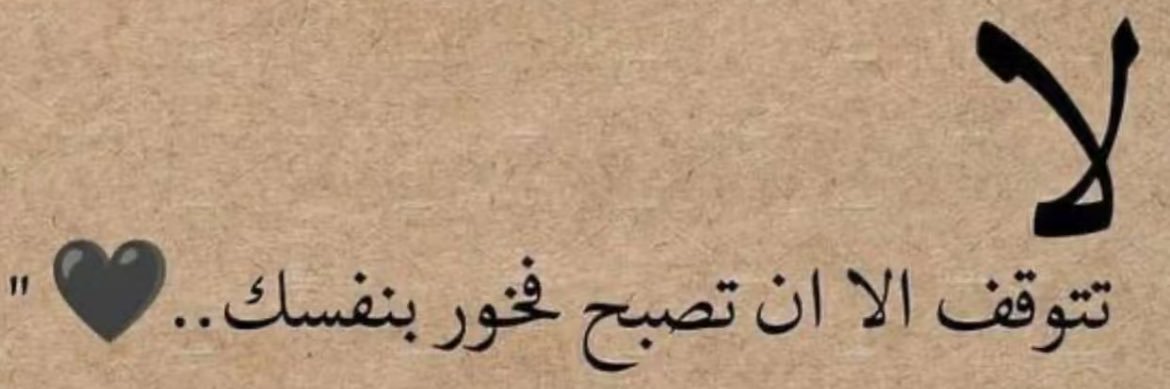 لا
تتوقف الا ان تصبح فخور بنفسك..🖤 "